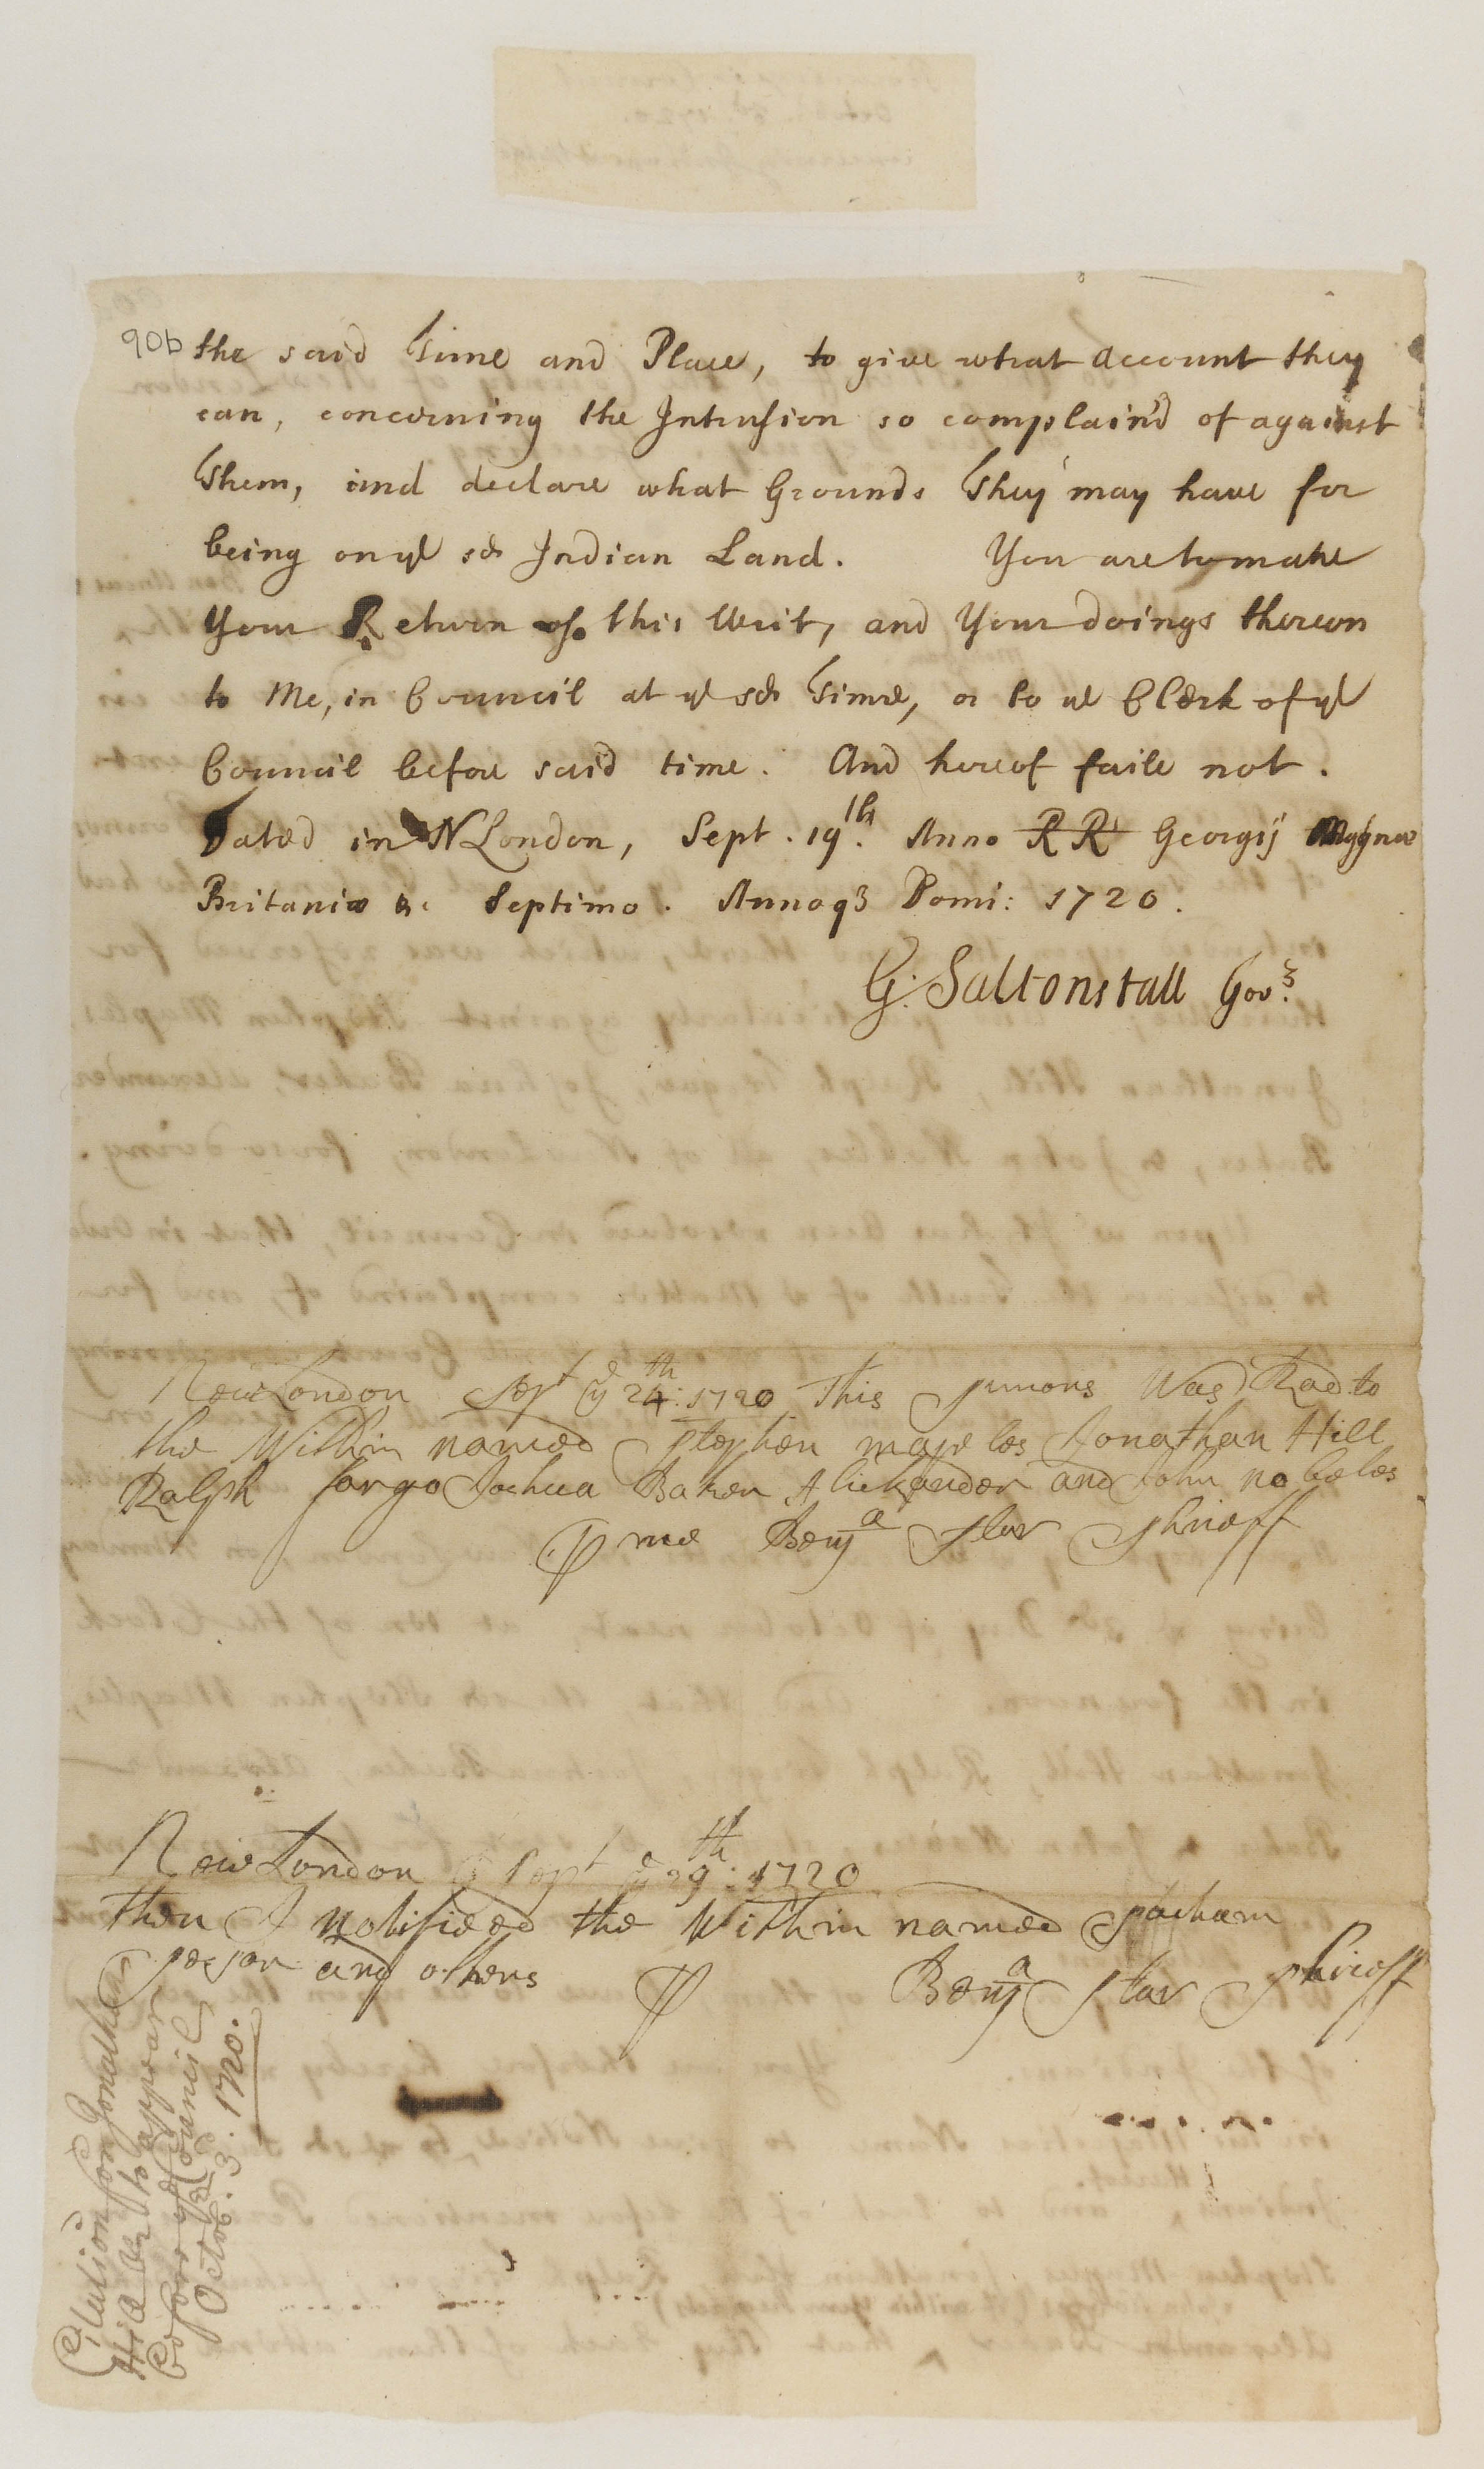 90b
the said Time and Place, to give what account they
can, concerning the Intrusion so complain'd of against
Them, and declare what Grounds They may have for
being on ye sd Indian Land. You are to make
Your Return of this Writ, and Your doings thereon
to Me, in Council at ye sd Time, or to ye Clerk of ye
Council before said time. And hereof faile not.
Dated in N London, Sept. 19th. Anno R R Georgij Magnae
Britaniae &c Septimo. Annoqz Domi: 1720.
G: Saltonstall Govr.
New London Sept ye 24th: 1720 This sumons Was Rad to
the Within named Stephen maples Jonathan Hill
Ralph fargo Joshua Baker Alickander and John nobeles
P me Benja Star Shrieff
New London Sept ye 29th: 1720
Then I notifieed the Within named
and others P Benja Star Shrieff
Citation for Jonathan
Hill &c to appear
before ye Council
Octobr. 3. 1720.